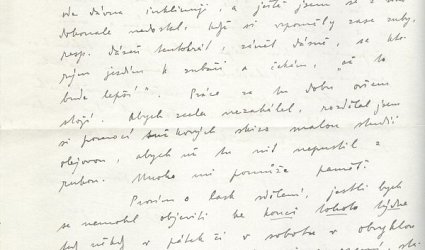 do dávna inklinuji, a ještě jsem se z nich
dokonale nedostal. Když si vzpomněly zase zuby,
resp. dáseň tentokrát, zánět dásně, se kte-
rým jezdím k zubaři a čekám, "až to
bude lepší". Práce se tu dobu ovšem
stojí. Abych zcela nezahálel, rozdělal jsem
si pomocí skizz malou studii
olejovou, abych už to nit nepustil z
rukou. Mnoho mi pomůže paměť.
Prosím o lask. sdělení, jestli bych
se nemohl objeviti ke konci tohoto týdne
tedy někdy v pátek či v sobotu v obvyklou